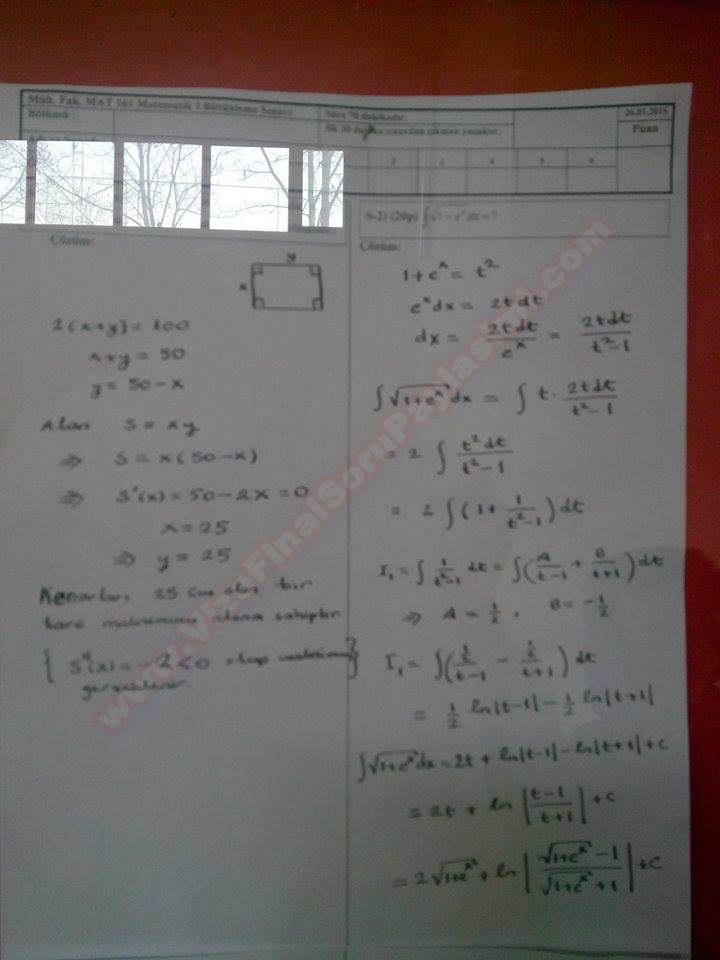 Müh. Fak. MAT 161 Matematik I Bütünleme Sınavı
Süre 70 dakikadır.
26.01.2015
Bölümü :
İlk 30 dakika sınavdan çıkmak yasaktır.
Puan
2 3 4 5 6
Çözüm:
y
x
2(x+y)=100
x+y=50
y=50-x
Alan S = xy
⇒ S = x(50-x)
⇒ S'(x)=50-2x=0
x=25
⇒ y=25
Kenarları 25 cm olan bir
kare maksimum alana sahiptir
{ S''(x)=-2<0 olup maksimum }
gerçeklenir.
S-2) (20p) ∫√1+e^x dx = ?
Çözüm:
1+e^x = t^2
e^x dx = 2t dt
dx = 2t dt / e^x = 2t dt / t^2-1
∫√1+e^x dx = ∫ t · 2t dt / t^2-1
= 2 ∫ t^2 dt / t^2-1
= 2 ∫ (1 + 1/t^2-1) dt
I₁ = ∫ 1/t^2-1 dt = ∫(A/t-1 + B/t+1) dt
⇒ A = 1/2 , B = -1/2
I₁ = ∫(1/2/t-1 - 1/2/t+1) dt
= 1/2 ln|t-1| - 1/2 ln|t+1|
∫√1+e^x dx = 2t + ln|t-1| - ln|t+1| + c
= 2t + ln |t-1/t+1| + c
= 2√1+e^x + ln |√1+e^x -1 / √1+e^x +1| + c
www.VizeFinalSoruPaylasimi.com